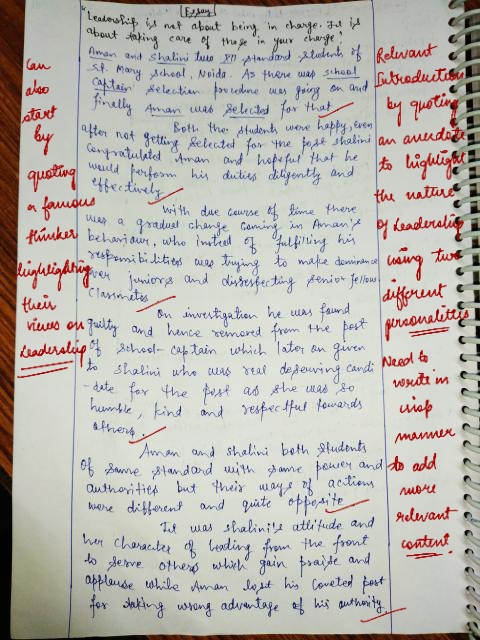 Essay
"Leadership is not about being in charge. It is
about taking care of those in your charge."
Aman and Shalini two XII standard students of
St. Mary School, Noida. As there was school
Captain selection procedure was going on and
finally Aman was selected for that
Both the students were happy, even
after not getting selected for the post Shalini
Congratulated Aman and hopeful that he
would perform his duties diligently and
effectively
With due course of time there
was a gradual change coming in Aman's
behaviour, who insted of fulfiring his
responsibilities was trying to make dominance
over juniors and disrespecting senior fellows
Classmates
On investigation he was found
guilty and hence removed from the post
of school-captain which later on given
to Shalini who was real deserving candi
-date for the post as she was so
humble, kind and respectful towards
others.
Aman and Shalini both students
Of same standard with same power and
authorities but their ways of actions
were different and quite opposite
It was Shalini's attitude and
her character of leading from the front
to serve others which gain praise and
applause while Aman lost his coveted post
for taking wrong advantage of his authority.
Can
also
start
by
quoting
a famous
thinker
highlighting
their
views on
Leadership
Relevant
Introduction
by quoting
an anecdote
to highlight
the nature
of Leadership
using two
different
personalities
Need to
write in
crisp
manner
to add
more
relevant
content.